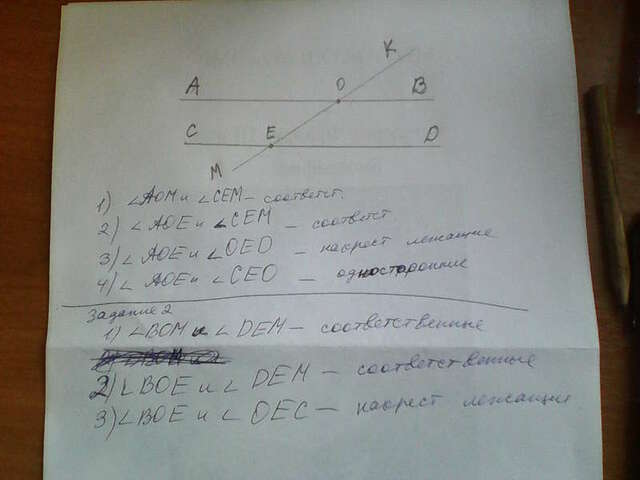 K
A O B
C E D
M
1) ∠AOM и ∠CEM – соответст.
2) ∠AOE и ∠CEM – соответст
3) ∠AOE и ∠OED – накрест лежащие
4) ∠AOE и ∠CEO – односторонние
Задание 2
1) ∠BOM и ∠DEM – соответственные
2) ∠BOE и ∠DEM – соответственные
3) ∠BOE и ∠OEC – накрест лежащие